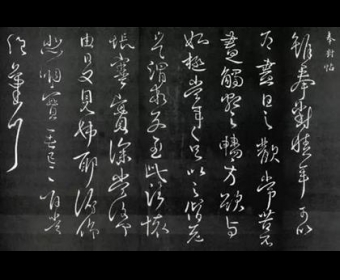 奉對帖
雖奉對積年可以
為盡日之歡常苦不
盡觸額之暢方欲與
姊極當年之足以之偕老
豈謂乖別至此諸懷
悵塞實深當復何
由日夕見姊耶俯仰
悲咽實無已已惟當
絕氣耳